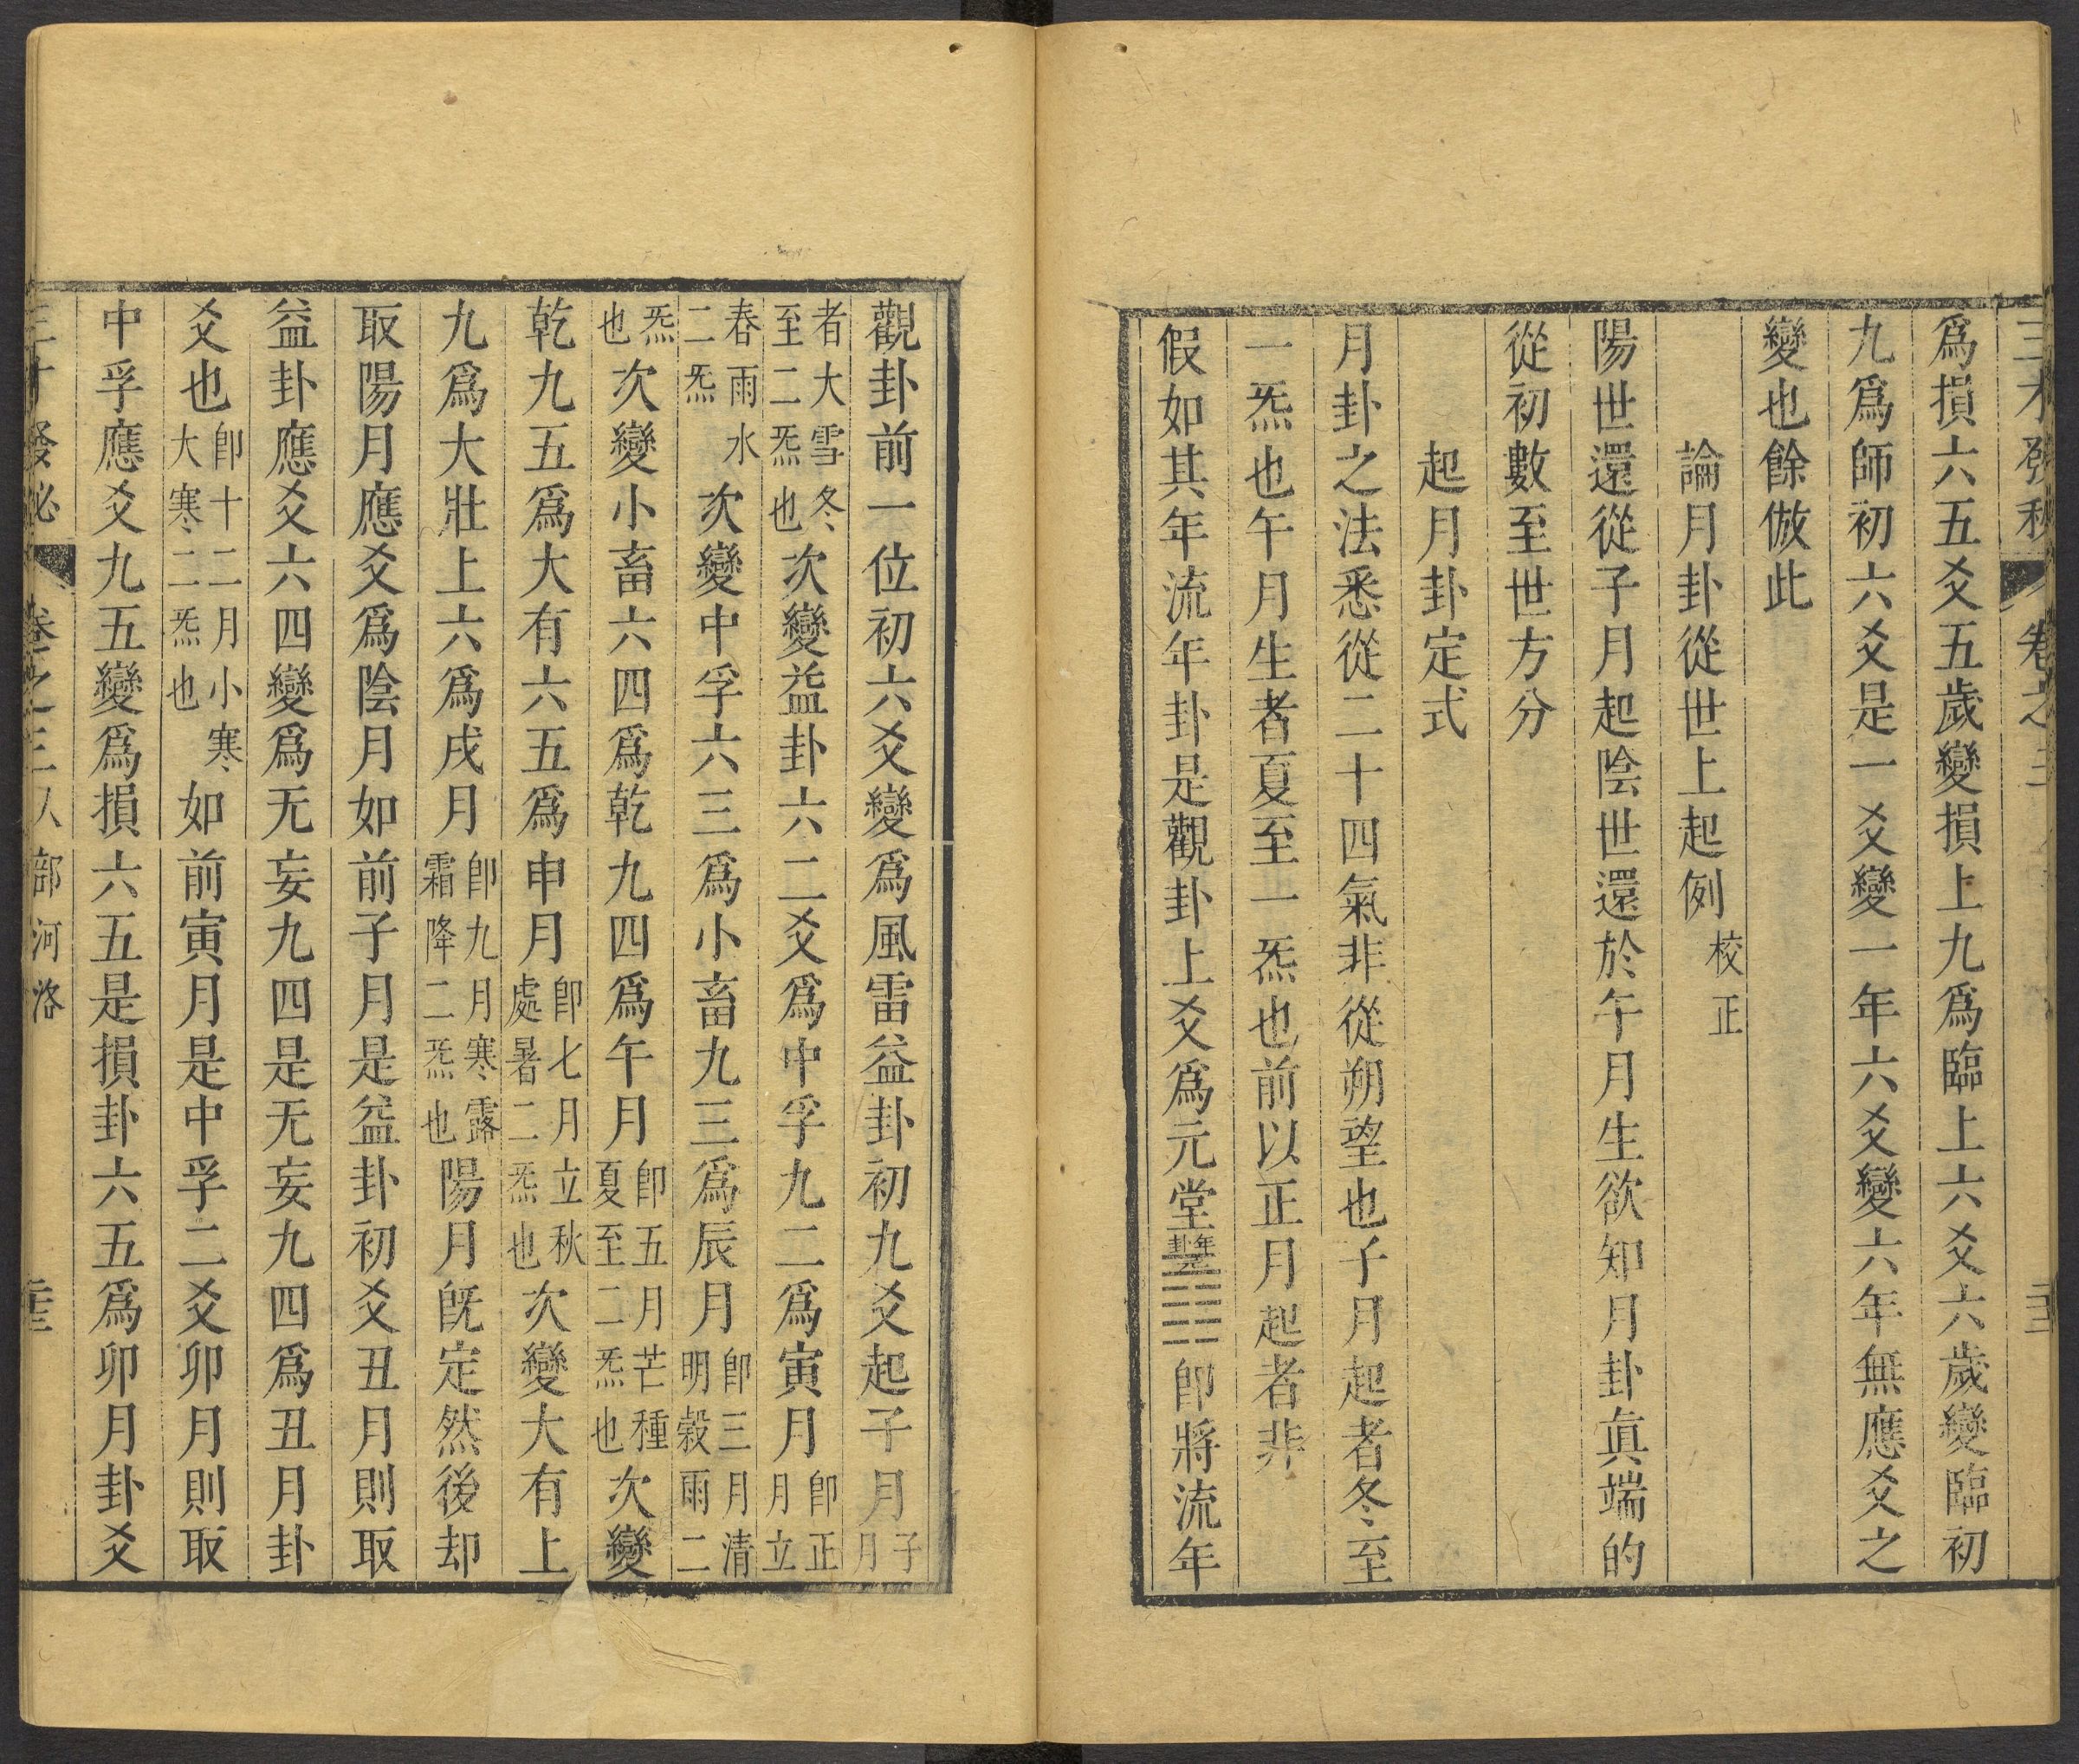 三才發秘 卷之三
爲損六五爻五歲變損上九爲臨上六爻六歲變臨初
九爲師初六爻是一爻變一年六爻變六年無應爻之
變也餘倣此
論月卦從世上起例 校正
陽世還從子月起陰世還於午月生欲知月卦真端的
從初數至世方分
起月卦定式
月卦之法悉從二十四氣非從朔望也子月起者冬至
一炁也午月生者夏至一炁也前以正月起者非
假如其年流年卦是觀卦上爻爲元堂年卦觀䷓卽將流年
觀卦前一位初六爻變爲風雷益卦初九爻起子月子月
者大雪冬至二炁也次變益卦六二爻爲中孚九二爲寅月卽正月立
春雨水二炁次變中孚六三爲小畜九三爲辰月卽三月清明榖雨二
炁也次變小畜六四爲乾九四爲午月卽五月芒種夏至二炁也次變
乾九五爲大有六五爲申月卽七月立秋處暑二炁也次變大有上
九爲大壯上六爲戌月卽九月寒露霜降二炁也陽月旣定然後却
取陽月應爻爲陰月如前子月是益卦初爻丑月則取
益卦應爻六四變爲无妄九四是无妄九四爲丑月卦
爻也卽十二月小寒大寒二炁也如前寅月是中孚二爻卯月則取
中孚應爻九五變爲損六五是損卦六五爲卯月卦爻
三才發秘 卷之三 人部河洛